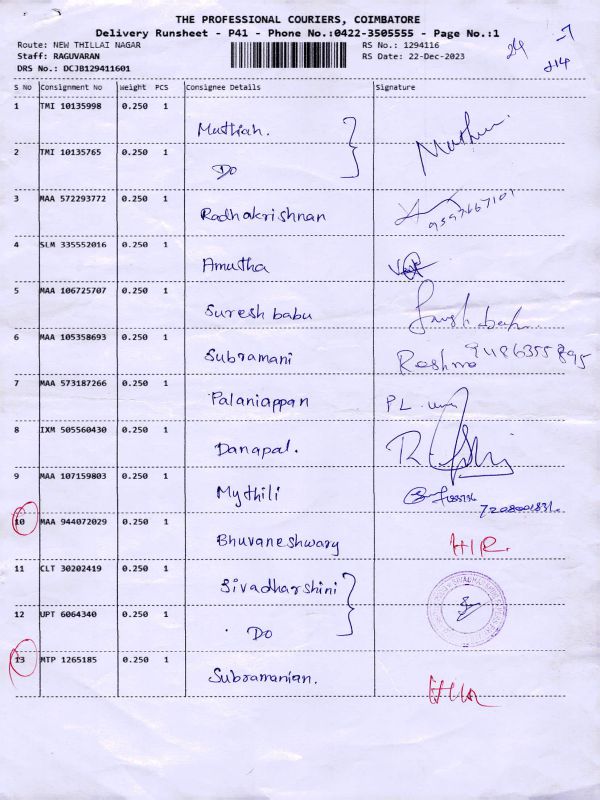 THE PROFESSIONAL COURIERS, COIMBATORE
Delivery Runsheet - P41 - Phone No.:0422-3505555 - Page No.:1
Route: NEW THILLAI NAGAR
RS No.: 1294116
Staff: RAGUVARAN
RS Date: 22-Dec-2023
DRS No.: DCJB129411601
S No Consignment No Weight PCS Consignee Details Signature
1 TMI 10135998 0.250 1 Muthiah.
2 TMI 10135765 0.250 1 Do
3 MAA 572293772 0.250 1 Radhakrishnan
4 SLM 335552016 0.250 1 Amutha
5 MAA 106725707 0.250 1 Suresh babu
6 MAA 105358693 0.250 1 Subramani
7 MAA 573187266 0.250 1 Palaniappan PL.
8 IXM 505560430 0.250 1 Danapal.
9 MAA 107159803 0.250 1 Mythili
10 MAA 944072029 0.250 1 Bhuvaneshwary
11 CLT 30202419 0.250 1 Sivadharshini
12 UPT 6064340 0.250 1 Do
13 MTP 1265185 0.250 1 Subramanian.